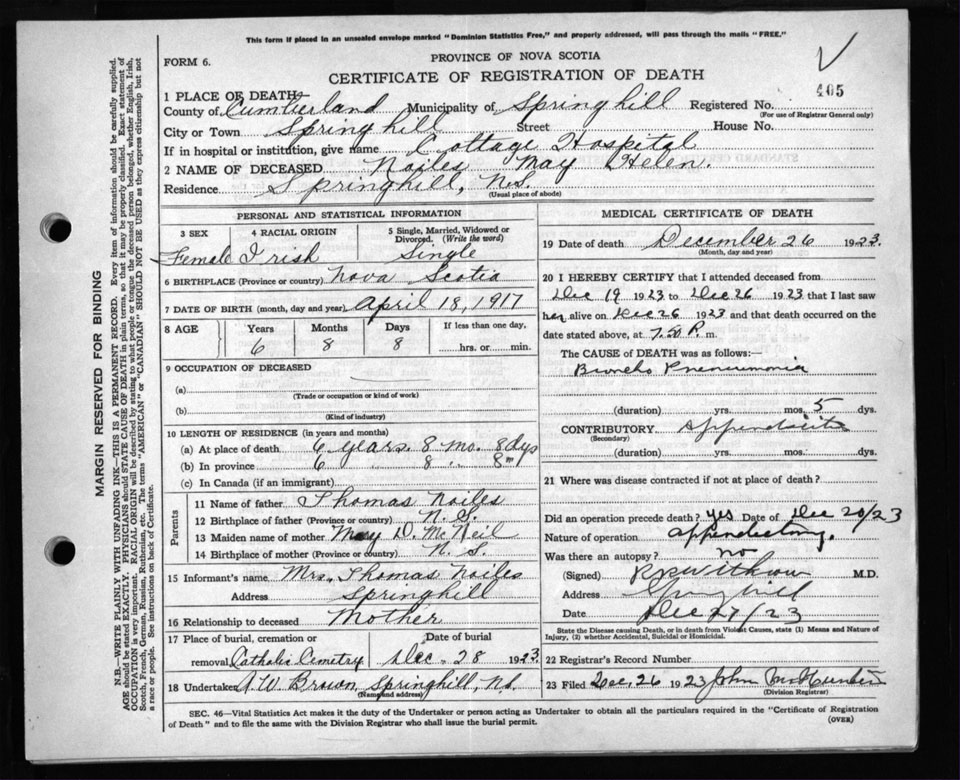 This form if placed in an unsealed envelope marked "Dominion Statistics Free," and properly addressed, will pass through the mails "FREE."
FORM 6.
PROVINCE OF NOVA SCOTIA
CERTIFICATE OF REGISTRATION OF DEATH
405
1 PLACE OF DEATH—
County of Cumberland Municipality of Springhill Registered No.
(For use of Registrar General only)
City or Town Springhill Street House No.
If in hospital or institution, give name Cottage Hospital
2 NAME OF DECEASED Noiles May Helen.
Residence Springhill, N.S.
(Usual place of abode)
MARGIN RESERVED FOR BINDING
N.B.—WRITE PLAINLY WITH UNFADING INK—THIS IS A PERMANENT RECORD. Every item of information should be carefully supplied.
AGE should be stated EXACTLY. PHYSICIANS should STATE CAUSE OF DEATH in plain terms, so that it may be properly classified. Exact statement of
OCCUPATION is very important. RACIAL ORIGIN will be described by stating to what people or tongue the deceased person belonged, whether English, Irish,
Scotch, French, German, Russian, Ruthenian, etc. The terms "AMERICAN" or "CANADIAN" SHOULD NOT BE USED as they express citizenship but not
a race or people. See instructions on back of Certificate.
PERSONAL AND STATISTICAL INFORMATION
3 SEX
4 RACIAL ORIGIN
5 Single, Married, Widowed or
Divorced. (Write the word)
Female Irish Single
6 BIRTHPLACE (Province or country) Nova Scotia
7 DATE OF BIRTH (month, day and year) April 18, 1917
8 AGE Years Months Days If less than one day,
6 8 8 hrs. or min.
9 OCCUPATION OF DECEASED
(a)
(Trade or occupation or kind of work)
(b)
(Kind of industry)
10 LENGTH OF RESIDENCE (in years and months)
(a) At place of death 6 years. 8 mo. 8 dys
(b) In province 6 " 8 " 8 "
(c) In Canada (if an immigrant)
Parents
11 Name of father Thomas Noiles
12 Birthplace of father (Province or country) N.S.
13 Maiden name of mother May D. McNeil
14 Birthplace of mother (Province or country) N.S.
15 Informant's name Mrs. Thomas Noiles
Address Springhill
16 Relationship to deceased Mother
17 Place of burial, cremation or Date of burial
removal Catholic Cemetry Dec. 28 1923
18 Undertaker A.W. Brown, Springhill, NS.
(Name and address)
MEDICAL CERTIFICATE OF DEATH
19 Date of death December 26 1923
(Month, day and year)
20 I HEREBY CERTIFY that I attended deceased from
Dec 19 1923 to Dec 26 1923 that I last saw
her alive on Dec 26 1923 and that death occurred on the
date stated above, at 7.50 P. m.
The CAUSE OF DEATH was as follows:—
Broncho Pneumonia
(duration) yrs. mos. 5 dys.
CONTRIBUTORY Appendicitis
(Secondary)
(duration) yrs. mos. dys.
21 Where was disease contracted if not at place of death?
Did an operation precede death? yes Date of Dec 20/23
Nature of operation appendectomy.
Was there an autopsy? no
(Signed) Withrow M.D.
Address Springhill
Date Dec 27/23
State the Disease causing Death, or in death from Violent Causes, state (1) Means and Nature of
Injury, (2) whether Accidental, Suicidal or Homicidal.
22 Registrar's Record Number
23 Filed Dec. 26 1923 John
(Division Registrar)
SEC. 46—Vital Statistics Act makes it the duty of the Undertaker or person acting as Undertaker to obtain all the particulars required in the "Certificate of Registration
of Death" and to file the same with the Division Registrar who shall issue the burial permit.
(OVER)